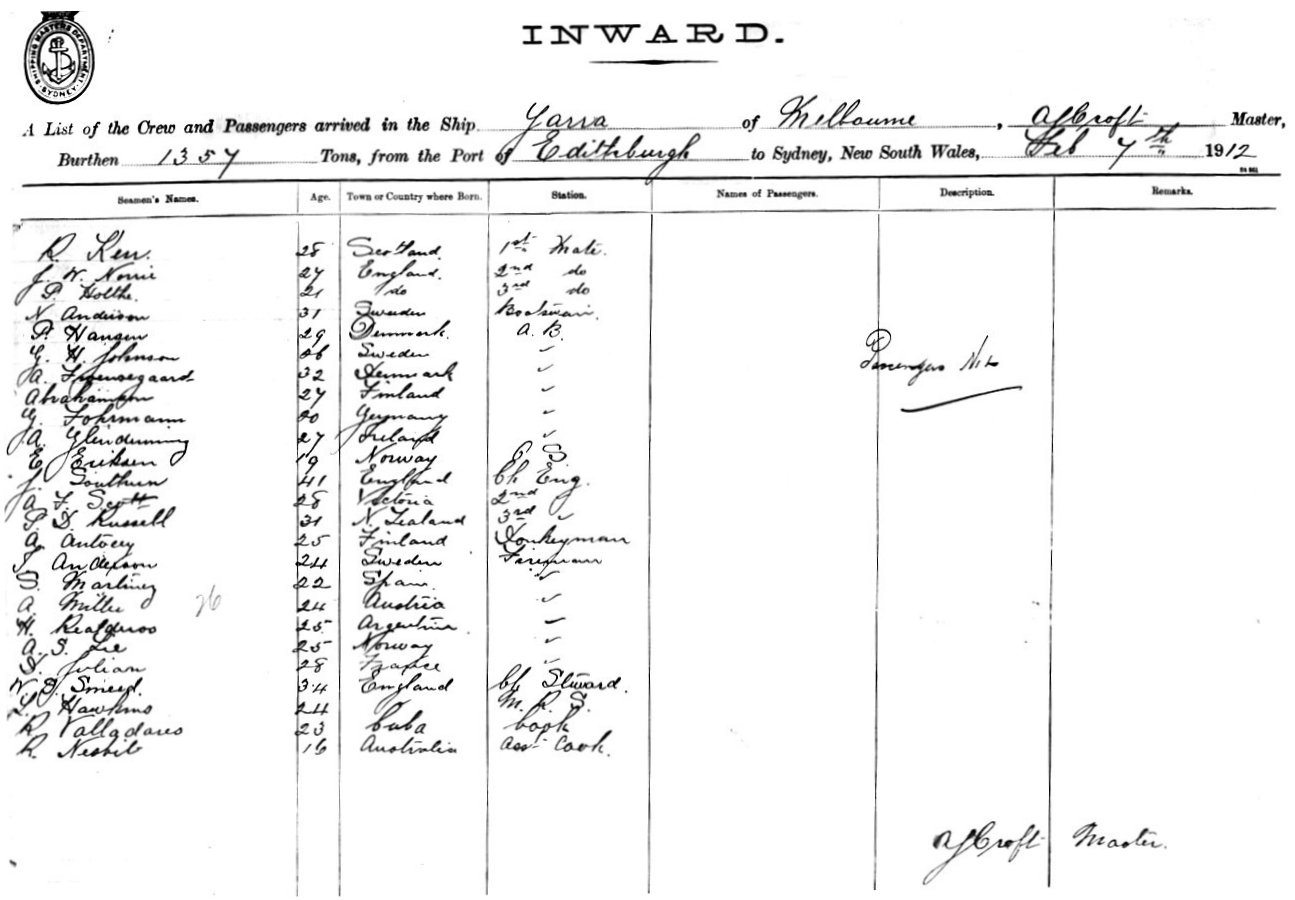 SHIPPING MASTERS DEPARTMENT SYDNEY
INWARD.
A List of the Crew and Passengers arrived in the Ship Yarra of Melbourne, A J Croft Master,
Burthen 1357 Tons, from the Port of Edithburgh to Sydney, New South Wales, Feb 7th 1912
Seamen's Names. Age. Town or Country where Born. Station. Names of Passengers. Description. Remarks.
R. Kerr. 28 Scotland. 1st Mate.
J. W. Norrie 27 England. 2nd do
P. Holthe. 21 do 3rd do
N. Anderson 31 Sweden Boatswain.
P. Hansen 29 Denmark. A. B.
G. H. Johnson 26 Sweden "
A. 32 Denmark "
Abrahamson 27 Finland "
G. Fohrmann 20 Germany "
A. Glendenning 27 Ireland "
E. Eriksen 19 Norway O S
J. Southern 41 England Ch Eng.
A. F. Scott 28 Victoria 2nd
P. D. Russell 31 N. Zealand 3rd "
A. Antony 25 Finland Donkeyman
Anderson 24 Sweden Fireman
S. Martinez 22 Spain. "
A. Miller 24 Austria "
26
H. 25 Argentina. "
A. S. Lie 25 Norway "
Julian 28 France "
W. Smeed. 34 England Ch Steward.
L. Hawkins 24 M. R. S.
R. Valladares 23 Cuba Cook
R. Nesbit 16 Australia Asst Cook.
Passengers Nil
A J Croft Master.